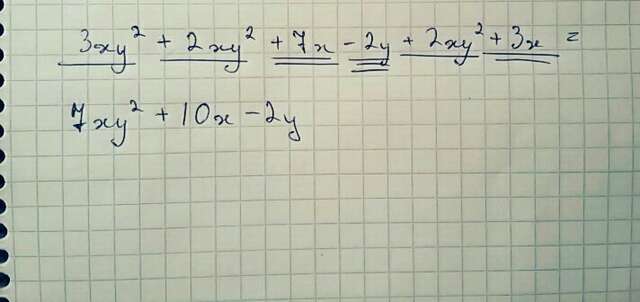 3xy² + 2xy² + 7x - 2y + 2xy² + 3x =
7xy² + 10x - 2y